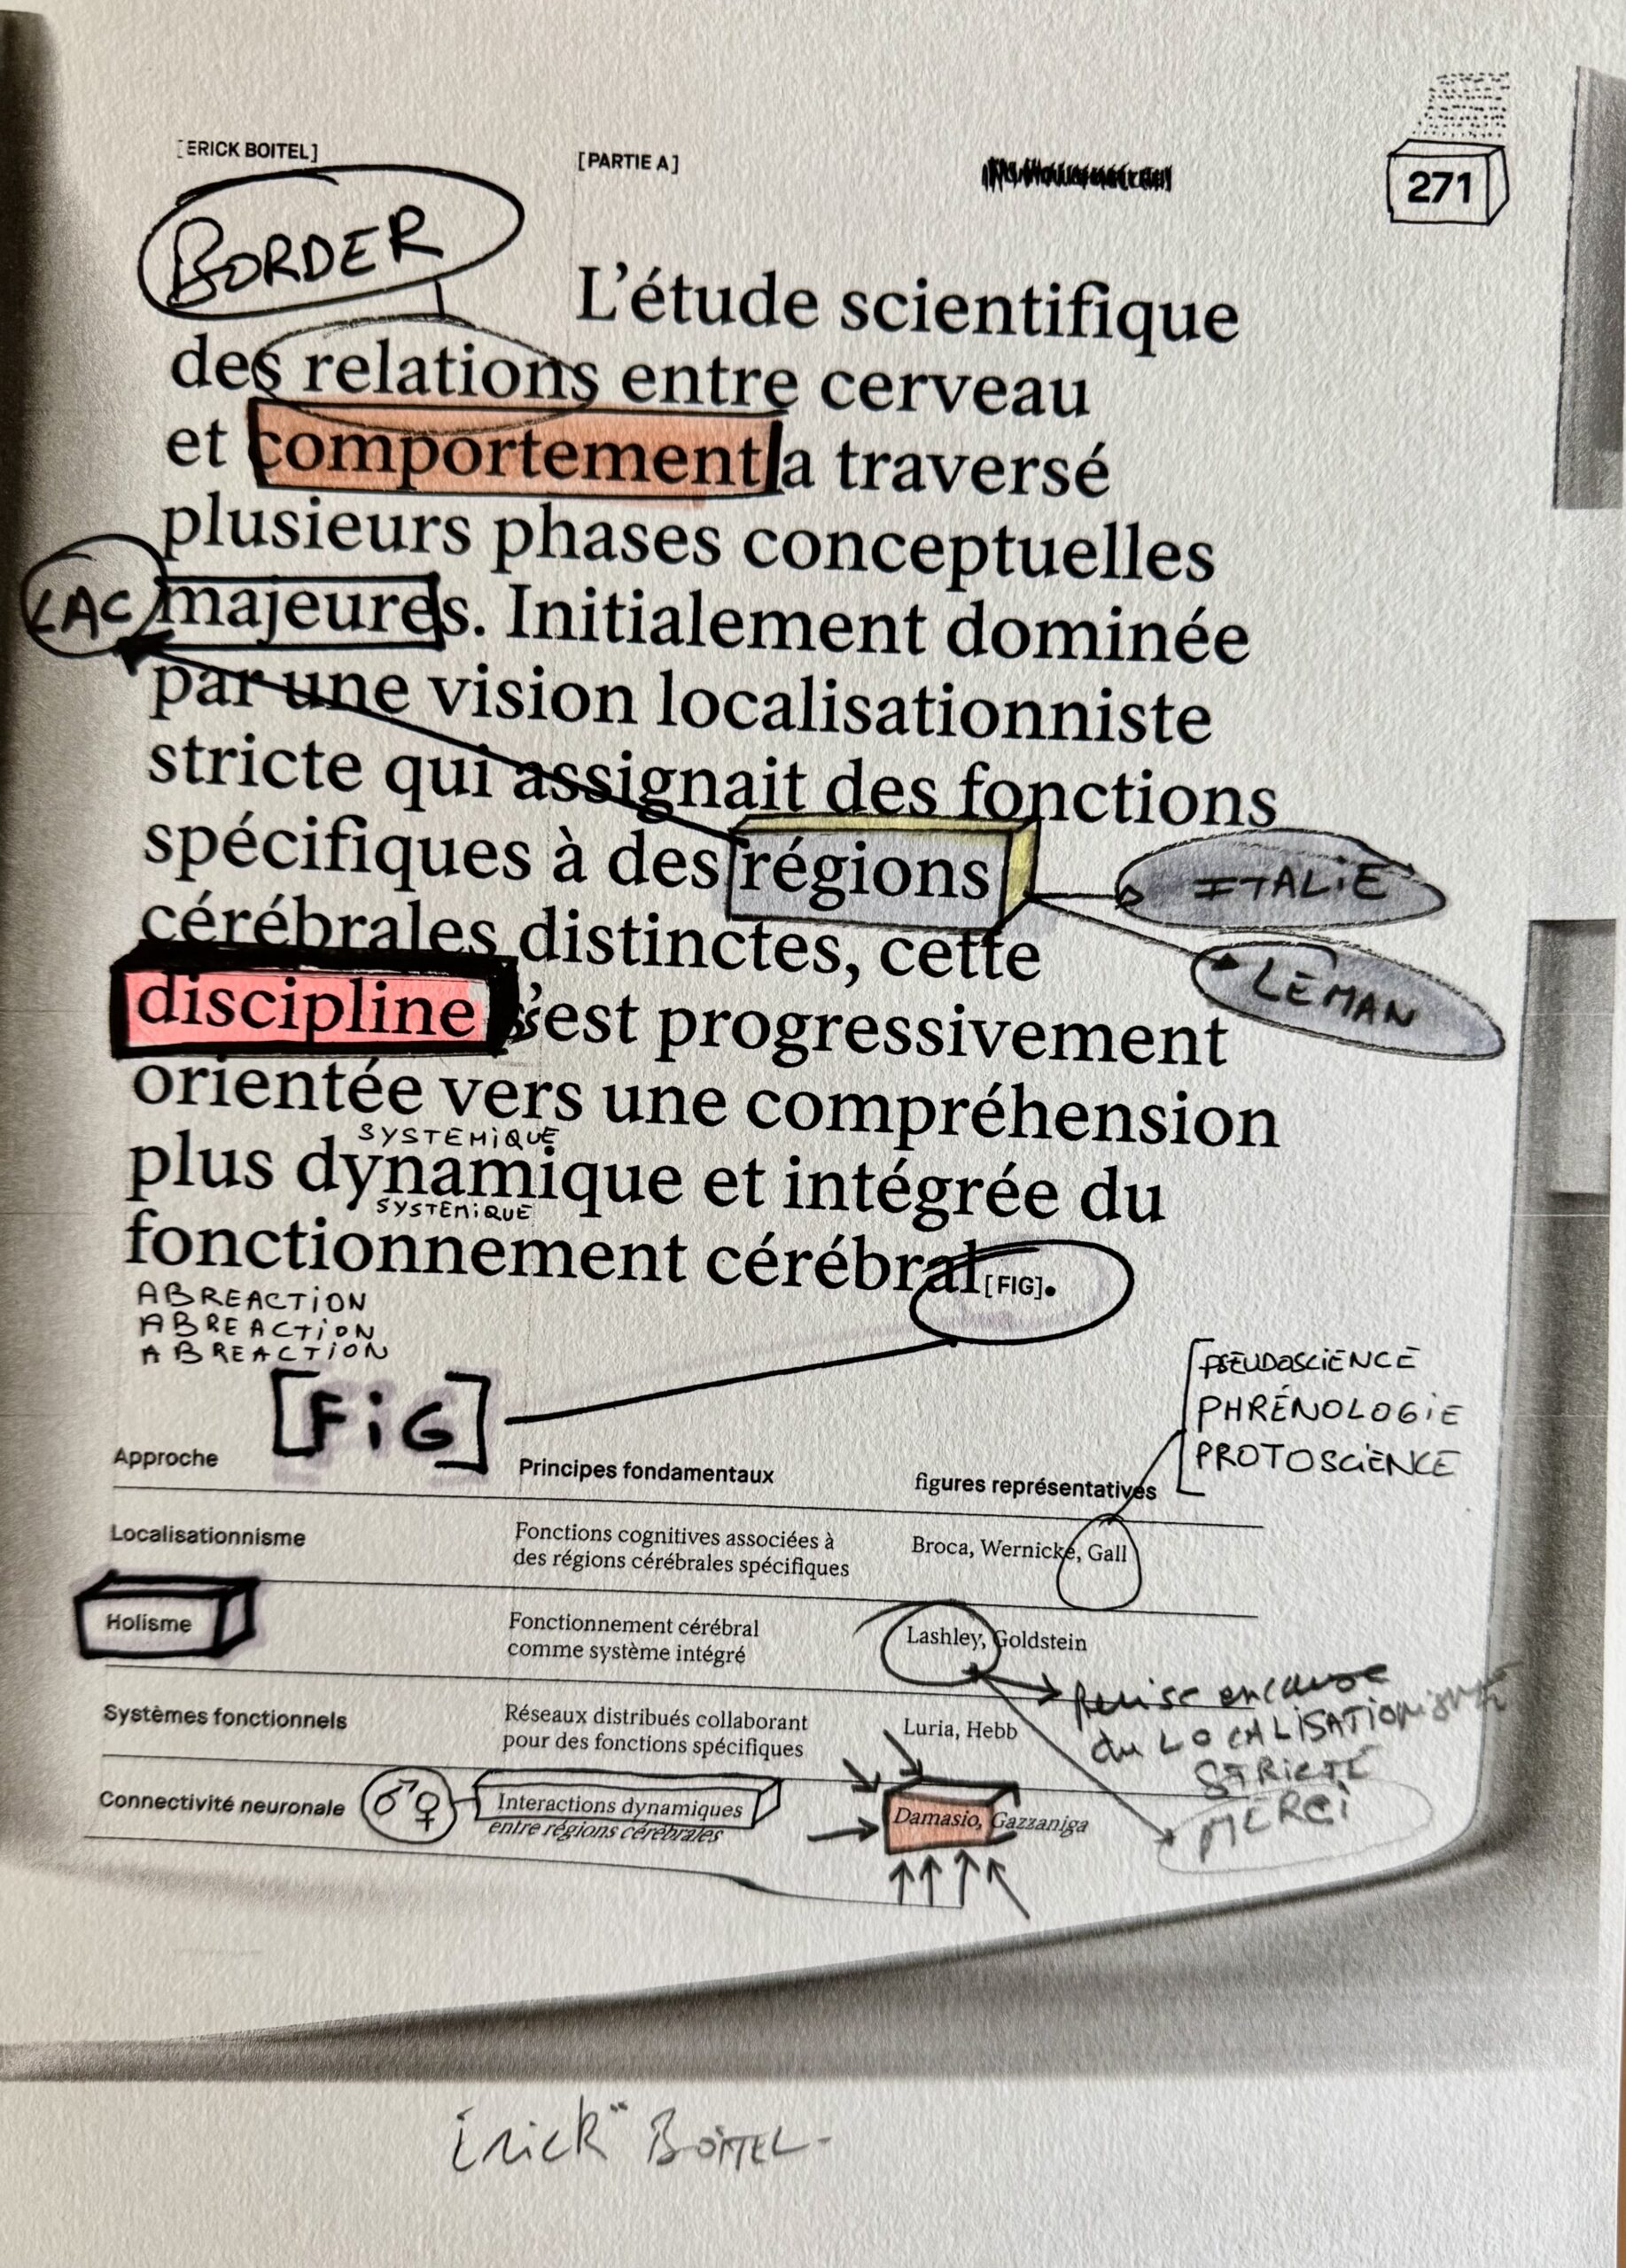 [ERICK BOITEL]
[PARTIE A]
271
BORDER
L'étude scientifique
des relations entre cerveau
et comportement a traversé
plusieurs phases conceptuelles
LAC
majeures. Initialement dominée
par une vision localisationniste
stricte qui assignait des fonctions
spécifiques à des régions
ITALIE
cérébrales distinctes, cette
LÉMAN
discipline s'est progressivement
orientée vers une compréhension
SYSTEMIQUE
plus dynamique et intégrée du
SYSTEMIQUE
fonctionnement cérébral [FIG].
ABREACTION
ABREACTION
ABREACTION
[FiG]
PSEUDOSCIENCE
PHRÉNOLOGIE
PROTOSCIENCE
Approche
Principes fondamentaux
figures représentatives
Localisationnisme
Fonctions cognitives associées à
des régions cérébrales spécifiques
Broca, Wernicke, Gall
Holisme
Fonctionnement cérébral
comme système intégré
Lashley, Goldstein
Remise en cause
du LOCALISATIONNISME
STRICTE
MERCI
Systèmes fonctionnels
Réseaux distribués collaborant
pour des fonctions spécifiques
Luria, Hebb
Connectivité neuronale
♂♀
Interactions dynamiques
entre régions cérébrales
Damasio, Gazzaniga
Erick BOITEL